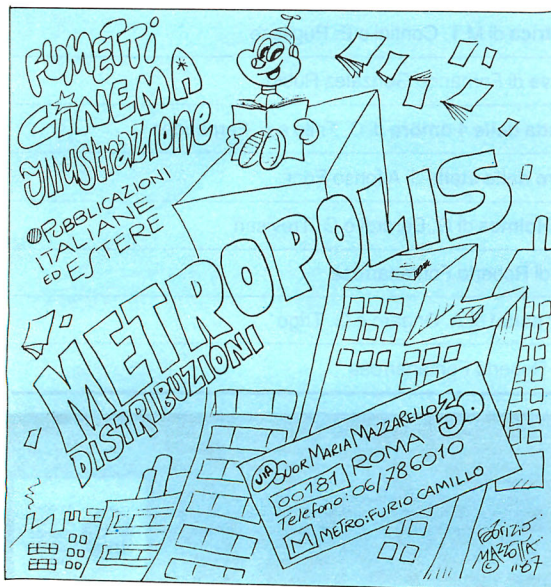 FUMETTI
CINEMA
ILLUSTRAZIONE
PUBBLICAZIONI
ITALIANE
ED ESTERE
METROPOLIS
DISTRIBUZIONI
VIA SUOR MARIA MAZZARELLO 30
00181 ROMA
Telefono: 06/786010
M METRO: FURIO CAMILLO
FABRIZIO
MAZZOTTA
© '87